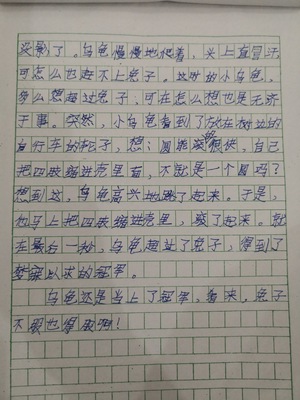 没影了。乌龟慢慢地爬着，头上直冒汗，
可怎么也赶不上兔子。这时的小乌龟，
多么想超过兔子，可在怎么想也是无济
于事。突然，小乌龟看到了放在树边的
自行车的轮子，想：圆能滚很快，自己
把四肢缩进壳里面，不就是一个圆吗？
想到这，乌龟高兴地跳了起来。于是，
他马上把四肢缩进壳里，滚了起来。就
在最后一秒，乌龟超过了兔子，得到了
梦寐以求的冠军。
乌龟还是当上了冠军，看来，兔子
不服也得服啊！